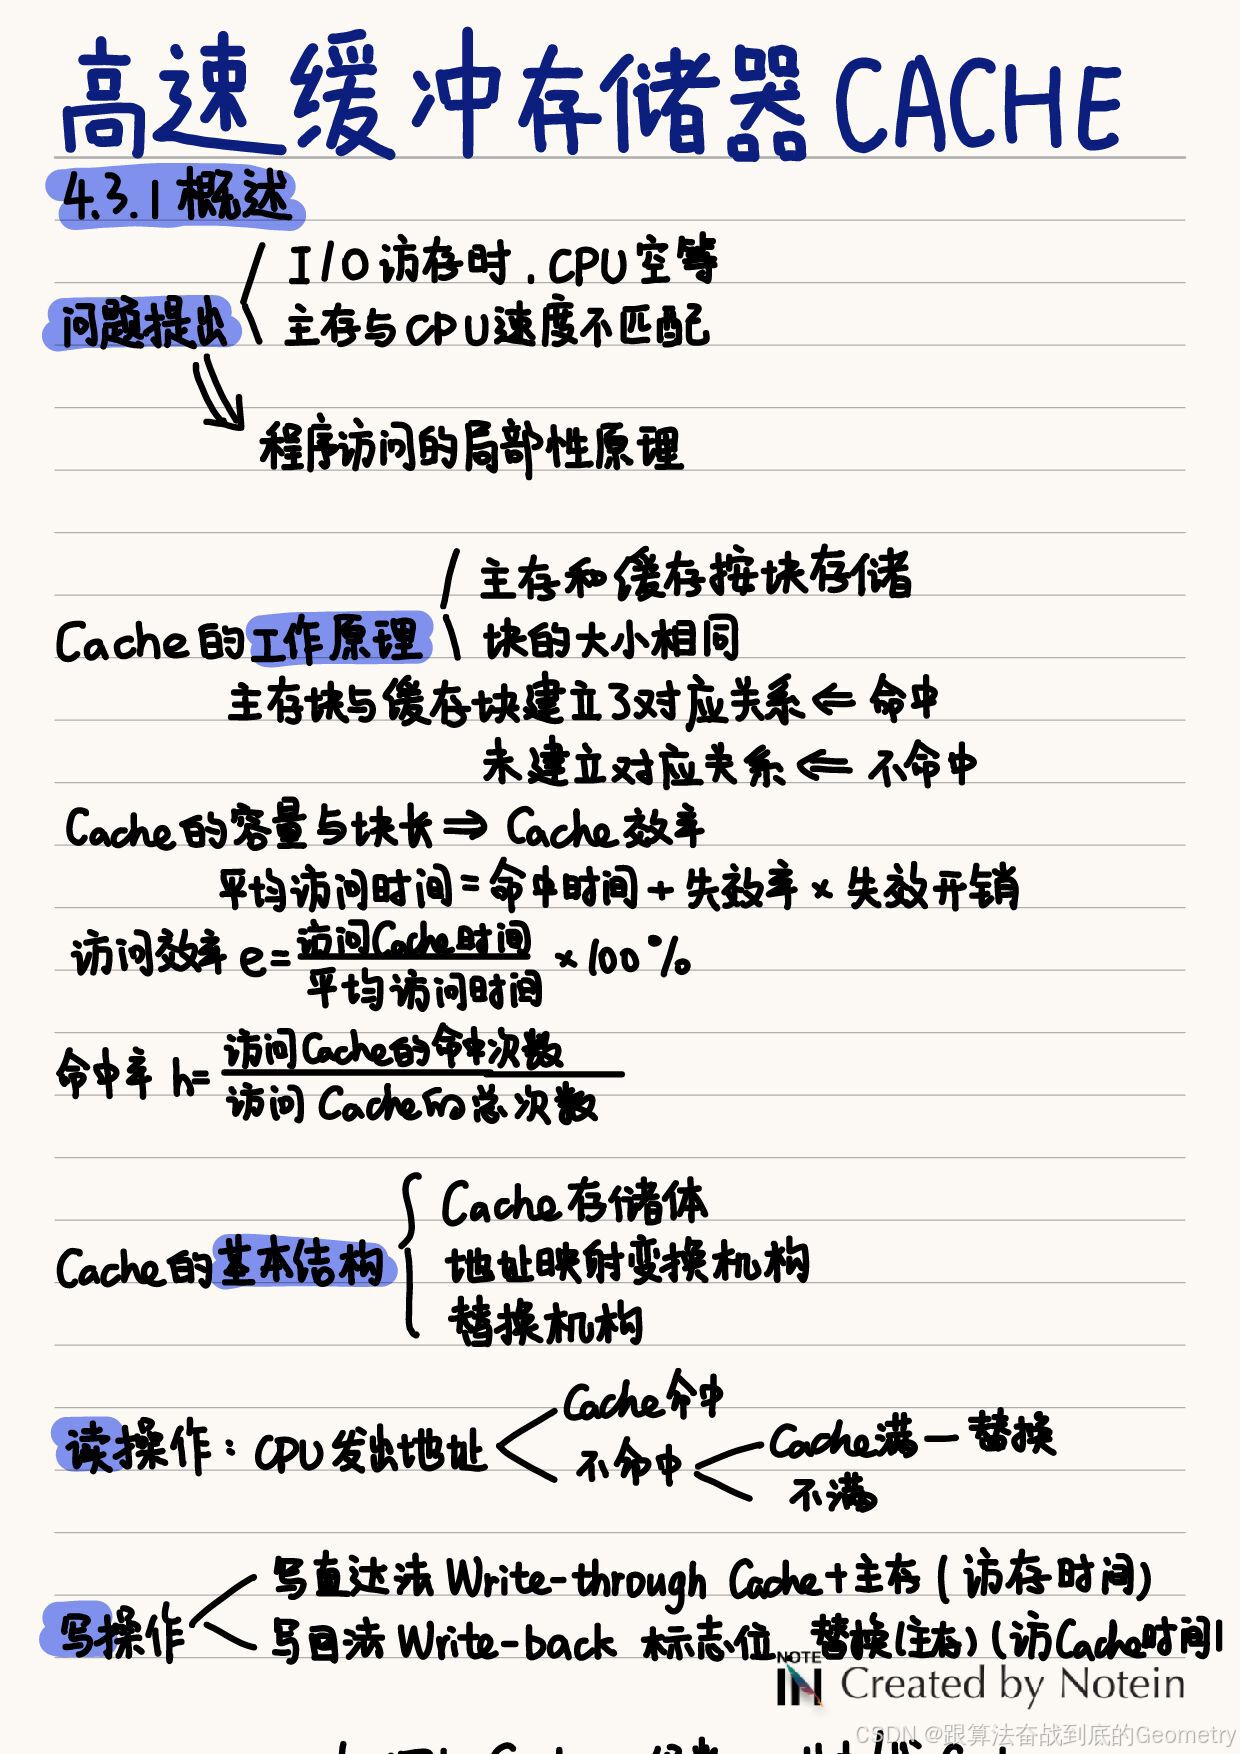 高速缓冲存储器CACHE
4.3.1 概述
I/O访存时, CPU空等
问题提出
主存与CPU速度不匹配
程序访问的局部性原理
主存和缓存按块存储
Cache的工作原理
块的大小相同
主存块与缓存块建立了对应关系 ⇐ 命中
未建立对应关系 ⇐ 不命中
Cache的容量与块长 ⇒ Cache效率
平均访问时间 = 命中时间 + 失效率 × 失效开销
访问效率 e = 访问Cache时间 / 平均访问时间 × 100%
命中率 h = 访问Cache的命中次数 / 访问Cache的总次数
Cache存储体
Cache的基本结构
地址映射变换机构
替换机构
Cache命中
读操作: CPU发出地址
不命中
Cache满 — 替换
不满
写直达法 Write-through Cache+主存 (访存时间)
写操作
写回法 Write-back 标志位 替换(主存) (访Cache时间)
NOTE IN Created by Notein
CSDN @跟算法奋战到底的Geometry